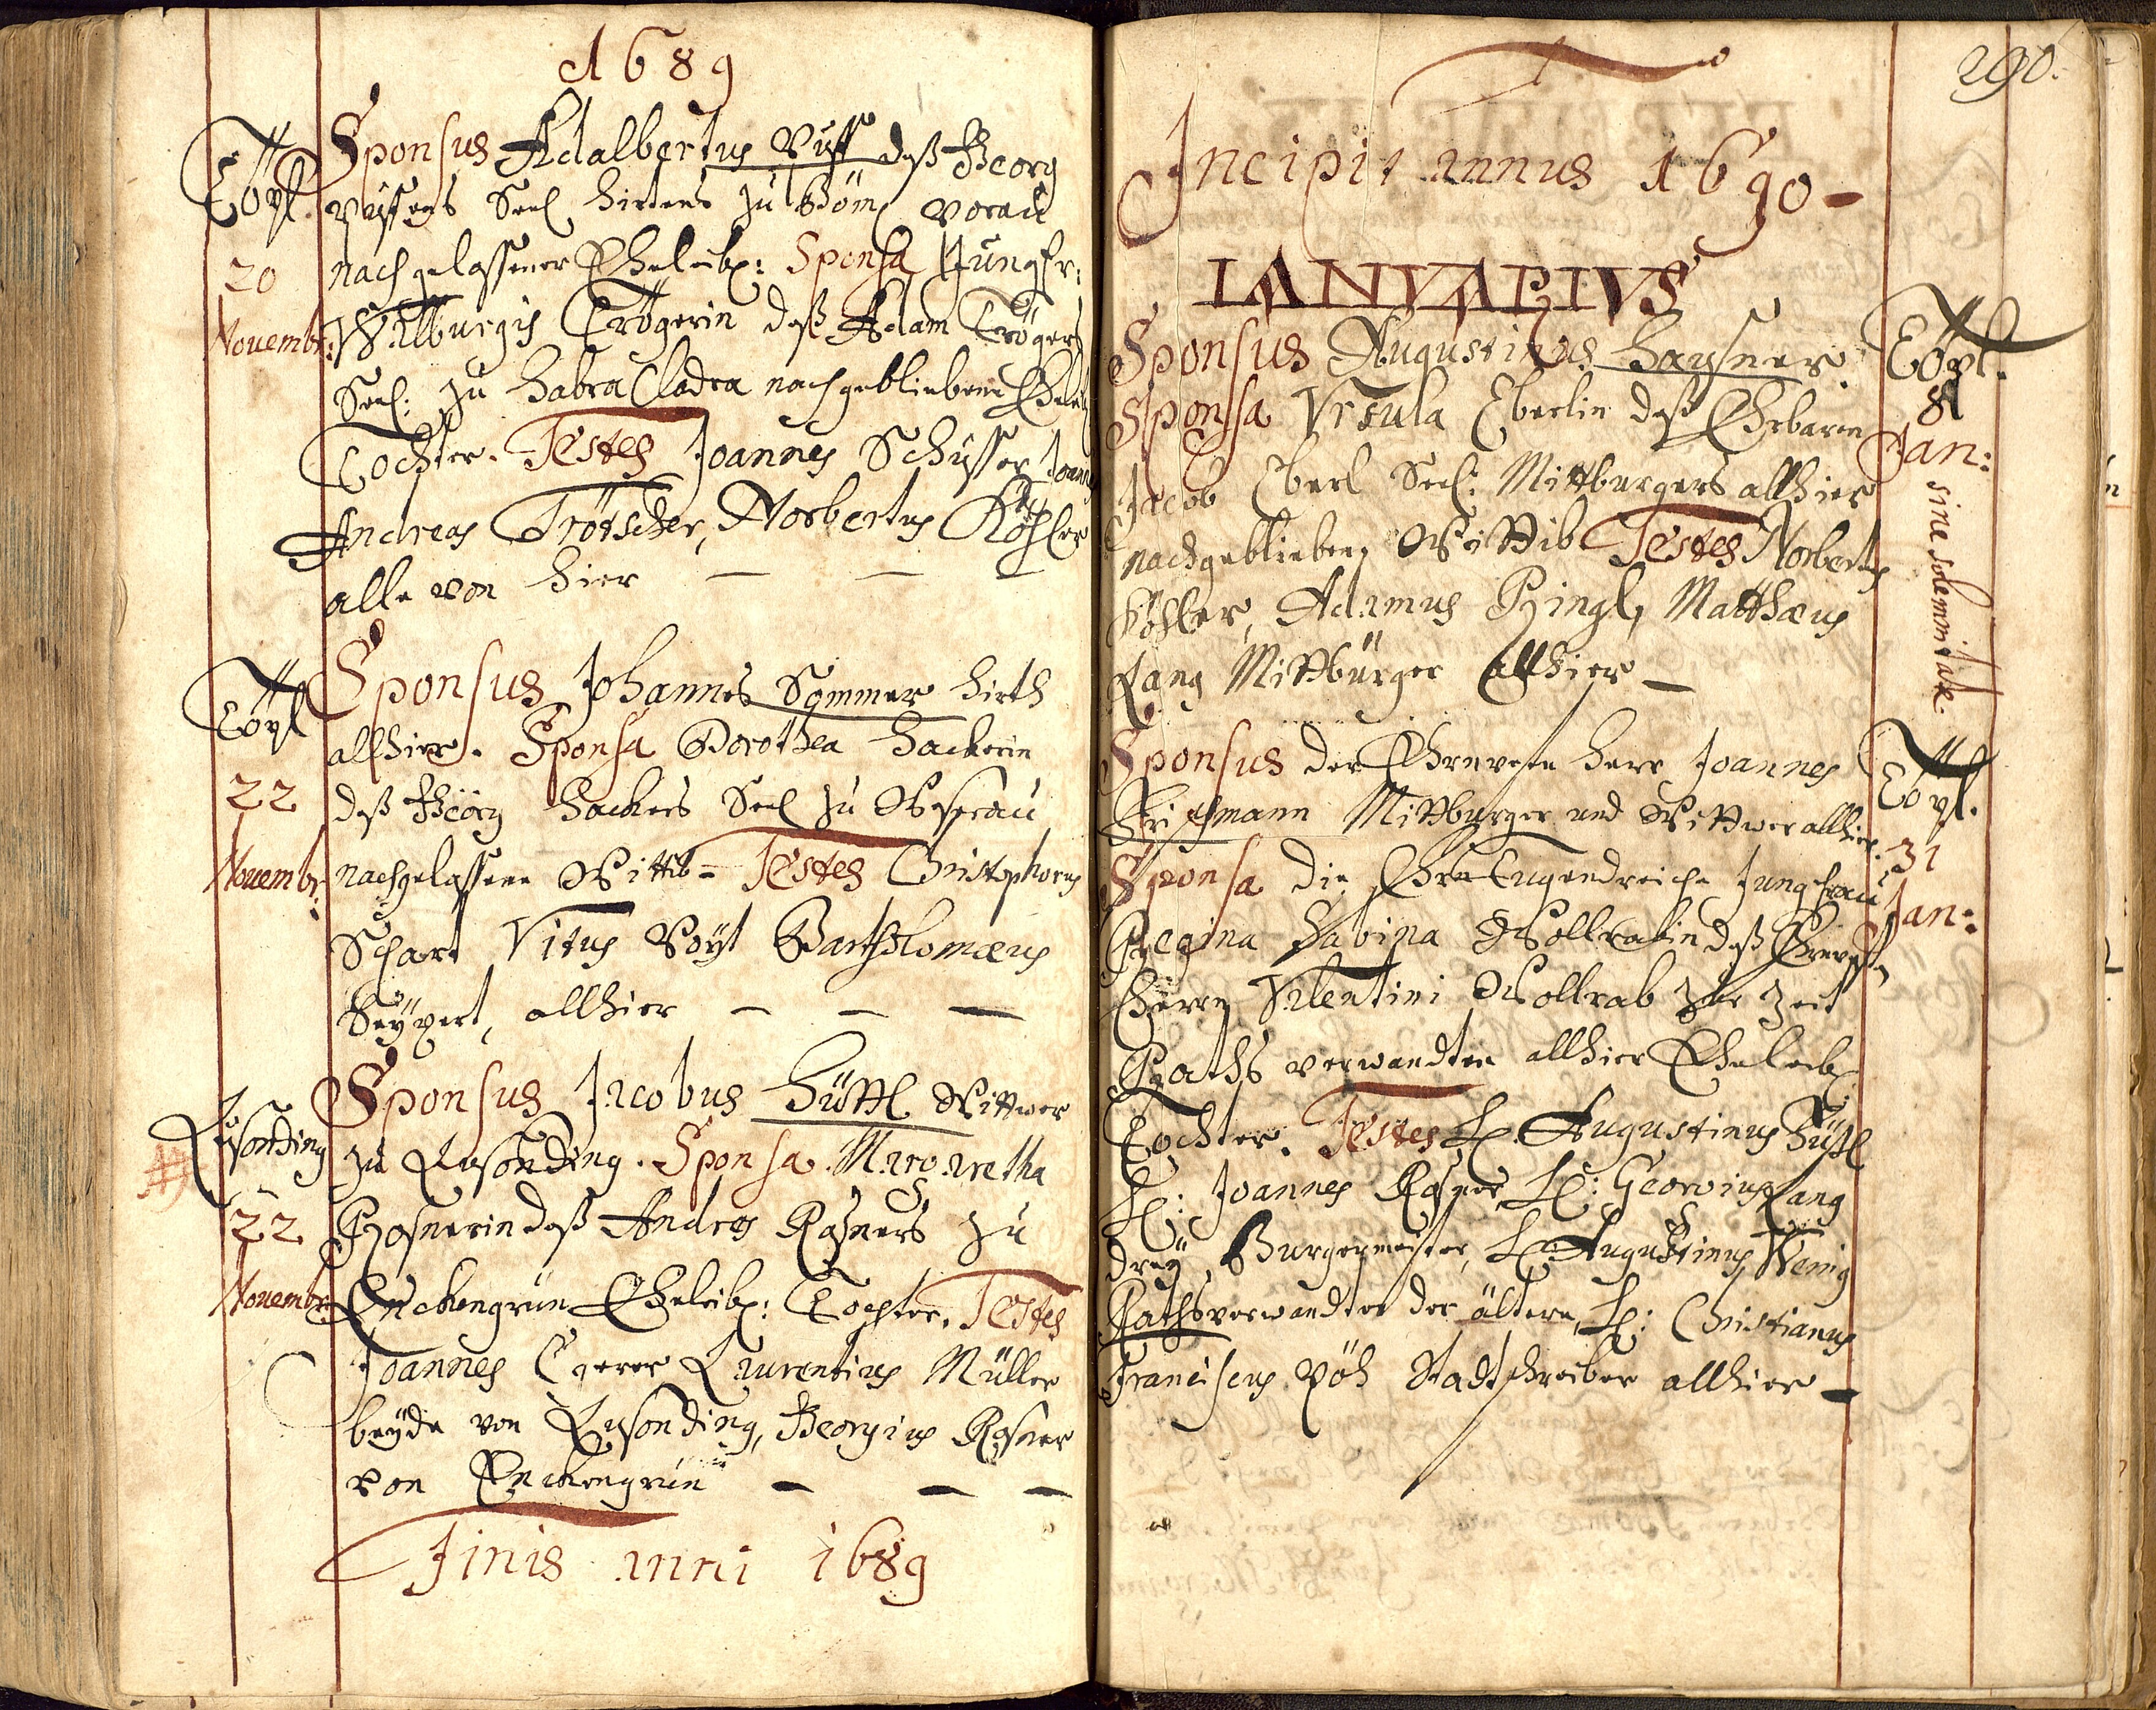 1689
Töpl.
20
Novembr:
Sponsus Adalbertus Puff deß Georg
Puffens Seel hirtens zu Böm. Borau
nachgelassener Eheleibl: Sponsa Jungfr:
Walburgis Trögerin deß Adam Trögers
Seel: zu Habra Cladra nachgebliebene Eheleibl
Tochter. Testes Joannes Schusser
Andreas Trötscher, Norbertus Köhler
alle von hier
Töpl
22
Novembr:
Sponsus Johannes Sommer hirth
allhier. Sponsa Dorothea Hackerin
deß Georg Hackers Seel zu Weserau
nachgelassene Wittib = Testes Christophorus
Schart Vitus Voyt Bartholomæus
Seypert, allhier
Lusonding
22
Novembr
Sponsus Jacobus Hüttl Wittwer
zu Lusonding. Sponsa Margaretha
Rosnerin deß Andres Rosners zu
Enckengrün Eheleibl: Tochter. Testes
Joannes Egerer Laurentius Müller
beyde von Lusonding, Georgius Rosner
von Enckengrün
Finis anni 1689
290.
Incipit annus 1690
IANVARIVS
Töpl.
8
Jan:
sine solemnitate.
Sponsus Augustinus Haysner
Sponsa Vrsula Eberlin deß Ehrbaren
Jacob Eberl Seel: Mittburgers allhier
nachgebliebene Wittib Testes Norbertus
Köhler, Adamus Ringl, Matthæus
Lang Mittbürger allhier
Töpl.
31
Jan:
Sponsus der Ehrnveste Herr Joannes
Mittburger und Wittwer allhier.
Sponsa die Ehrn Tugendreiche Jungfrau
Regina Sabina Wollrabin deß Ehrnvesten
Herrn Valentini Wollrab zur Zeit
Raths verwandten allhier Eheleibl
Tochter. Testes H. Augustinus Hüttl
H: Joannes Rosner H: Georgius Lang
drey Burgermeister, H: Augustinus Wenig
Rathsverwandter der ältere, H: Christianus
Franciscus Pöh Stadtschreiber allhier